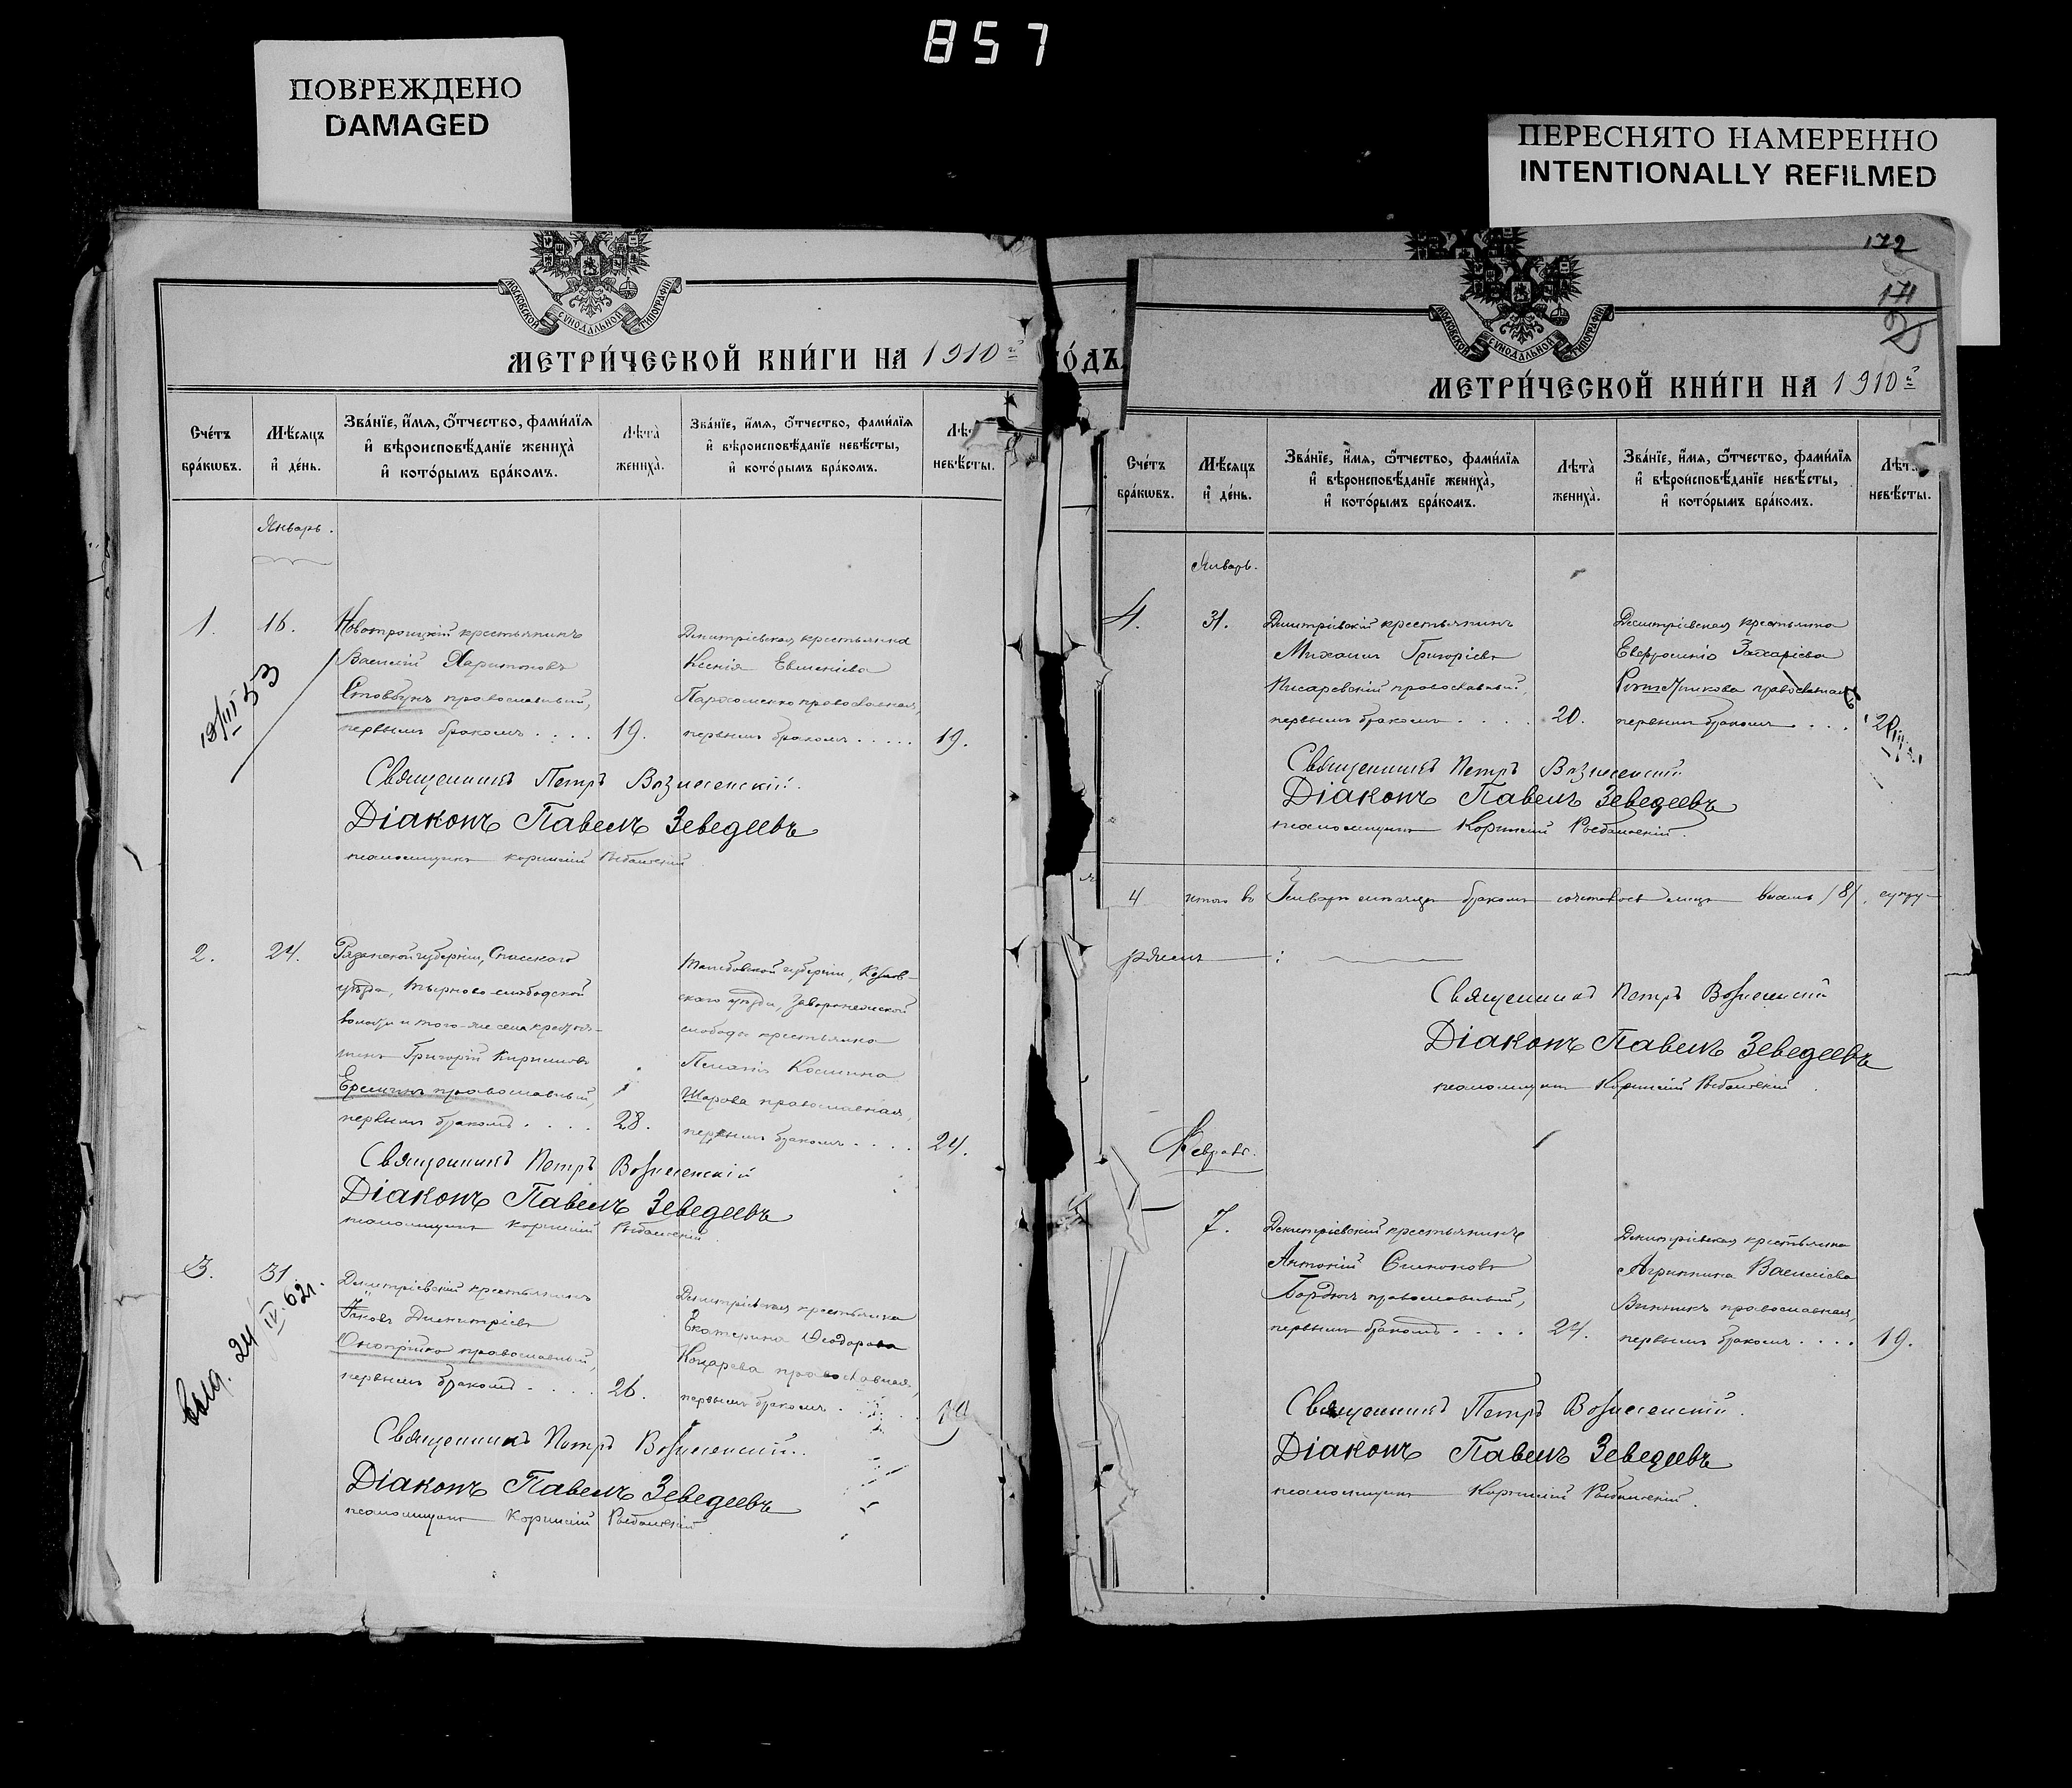 857
ПОВРЕЖДЕНО
DAMAGED
ПЕРЕСНЯТО НАМЕРЕННО
INTENTIONALLY REFILMED
МОСКОВСКОЙ СѴНОДАЛЬНОЙ ТИПОГРАФІИ
МЕТРИ́ЧЕСКОЙ КНИ́ГИ НА 1910й
Сче́тъ бра́кѡвъ.
Мѣ́сяцъ и҆ де́нь.
Зва́нїе, и҆́мѧ, ѻ҆́тчество, фами́лїѧ
и҆ вѣроисповѣ́данїе женихà
и҆ кото́рымъ бра́комъ.
Лѣ́та женихà.
Зва́нїе, и҆́мѧ, ѻ҆́тчество, фами́лїѧ
и҆ вѣроисповѣ́данїе невѣ́сты,
и҆ кото́рымъ бра́комъ.
невѣ́сты.
Январь.
1. 16.
Новотроицкій крестьянинъ
Василій Харитоновъ
Стовбунъ православный,
первымъ бракомъ . . . . 19.
Димитріевская крестьянка
Ксенія Евменіева
Пархоменко православная,
первымъ бракомъ . . . . . 19.
19/III 53
Священникъ Петръ Вознесенскій.
Діаконъ Павелъ Зеведеевъ
псаломщикъ
2. 24.
Рязанской губерніи, Спасскаго
уѣзда, Тырново-слободской
волости и того-же села крестья-
нинъ Григорій Кирилловъ
Еремчукъ православный,
первымъ бракомъ . . . . 28.
Тамбовской губерніи, Козлов-
скаго уѣзда, Заворонежской
слободы крестьянка
Пелагія Космина
Шарова православная,
первымъ бракомъ . . . . 24.
Священникъ Петръ Вознесенскій
Діаконъ Павелъ Зеведеевъ
псаломщикъ
3. 31.
Димитріевскій крестьянинъ
Іаковъ Димитріевъ
Оноприйко православный,
первымъ бракомъ . . . . 26.
Димитріевская крестьянка
Екатерина Ѳеодорова
Кошарева православная,
первымъ бракомъ
выд. 24/IV. 62г.
Священникъ Петръ Вознесенскій.
Діаконъ Павелъ Зеведеевъ
псаломщикъ
172
171
МОСКОВСКОЙ СѴНОДАЛЬНОЙ ТИПОГРАФІИ
МЕТРИ́ЧЕСКОЙ КНИ́ГИ НА 1910й
Сче́тъ бра́кѡвъ.
Мѣ́сяцъ и҆ де́нь.
Зва́нїе, и҆́мѧ, ѻ҆́тчество, фами́лїѧ
и҆ вѣроисповѣ́данїе женихà,
и҆ кото́рымъ бра́комъ.
Лѣтà женихà.
Зва́нїе, и҆́мѧ, ѻ҆́тчество, фами́лїѧ
и҆ вѣроисповѣ́данїе невѣ́сты,
и҆ кото́рымъ бра́комъ.
невѣ́сты.
Январь.
4. 31.
Димитріевскій крестьянинъ
Михаилъ Григоріевъ
Писаревскій православный,
первымъ бракомъ . . . . 20.
Димитріевская крестьянка
Евфросинія Захаріева
православная
первымъ бракомъ . . . 20
Священникъ Петръ Вознесенскій
Діаконъ Павелъ Зеведеевъ
псаломщикъ
4 итого въ Январѣ мѣсяцѣ бракомъ сочеталось лицъ восемь /8/, супру-
Священникъ Петръ Вознесенскій
Діаконъ Павелъ Зеведеевъ
псаломщикъ
Февраль.
7.
Димитріевскій крестьянинъ
Антоній Симоновъ
Бардюгъ православный,
первымъ бракомъ . . . . 24.
Димитріевская крестьянка
Агриппина Василіева
Винникъ православная,
первымъ бракомъ . . . . 19.
Священникъ Петръ Вознесенскій.
Діаконъ Павелъ Зеведеевъ
псаломщикъ